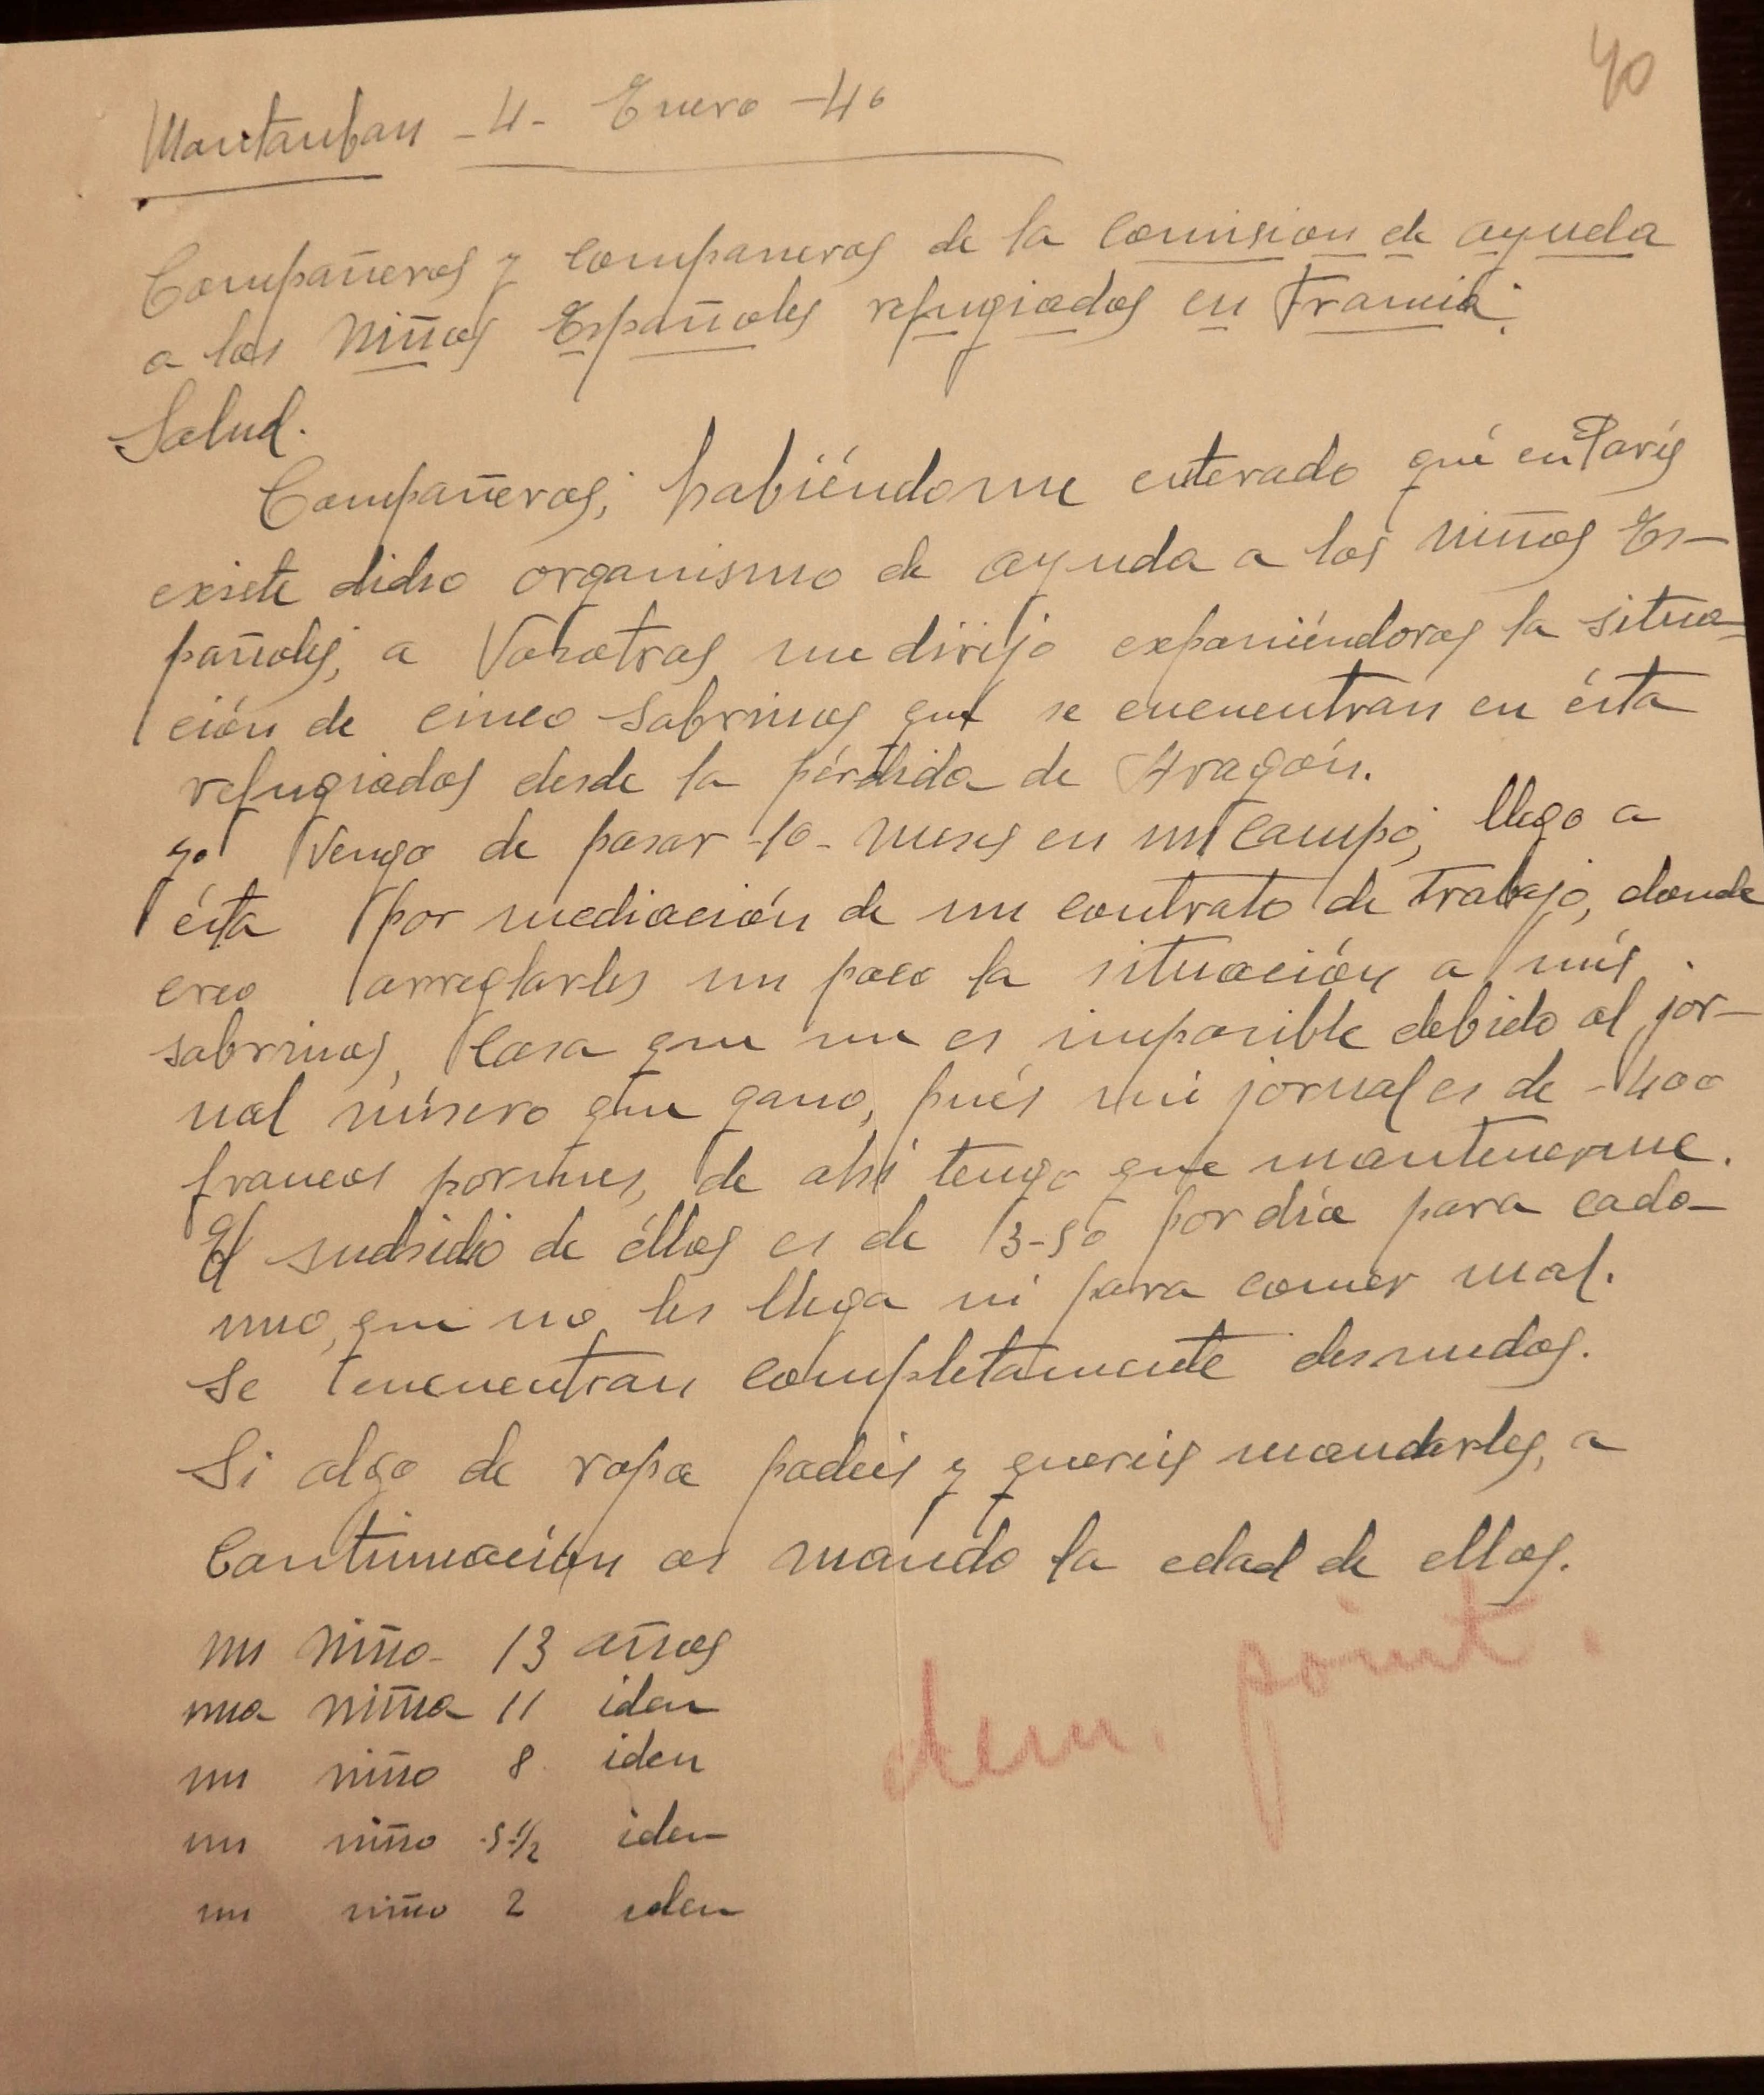 40
Montauban - 4 - Enero - 40
Compañeros y compañeros de la comision de ayuda
a los Niños Españoles refugiados en Francia:
Salud.
Compañeros; habiéndome enterado qué en París
existe dicho organismo de ayuda a los niños Es-
pañoles; a Vosotros me dirijo exponiéndoros la situa-
ción de cinco sobrinos que se encuentran en ésta
refugiados desde la pérdida de Aragón.
yo Vengo de pasar -10- meses en un Campo; llego a
ésta por mediación de un contrato de Trabajo, donde
creo arreglarles un poco la situación a mis
sobrinos, Cosa que me es imposible debido al jor-
nal mísero que gano, pués mi jornal es de -400
francos por mes, de ahí tengo que mantenerme.
El subsidio de éllos es de 3-50 por día para cada-
uno, que no les llega ni para comer mal.
Se encuentran completamente desnudos.
Si algo de ropa podeis y quereis mandarles, a
Continuación os mando la edad de ellos.
un niño - 13 años
una niña 11 iden
un niño 8 iden
un niño 5 1/2 iden
un niño 2 iden
dem. point.